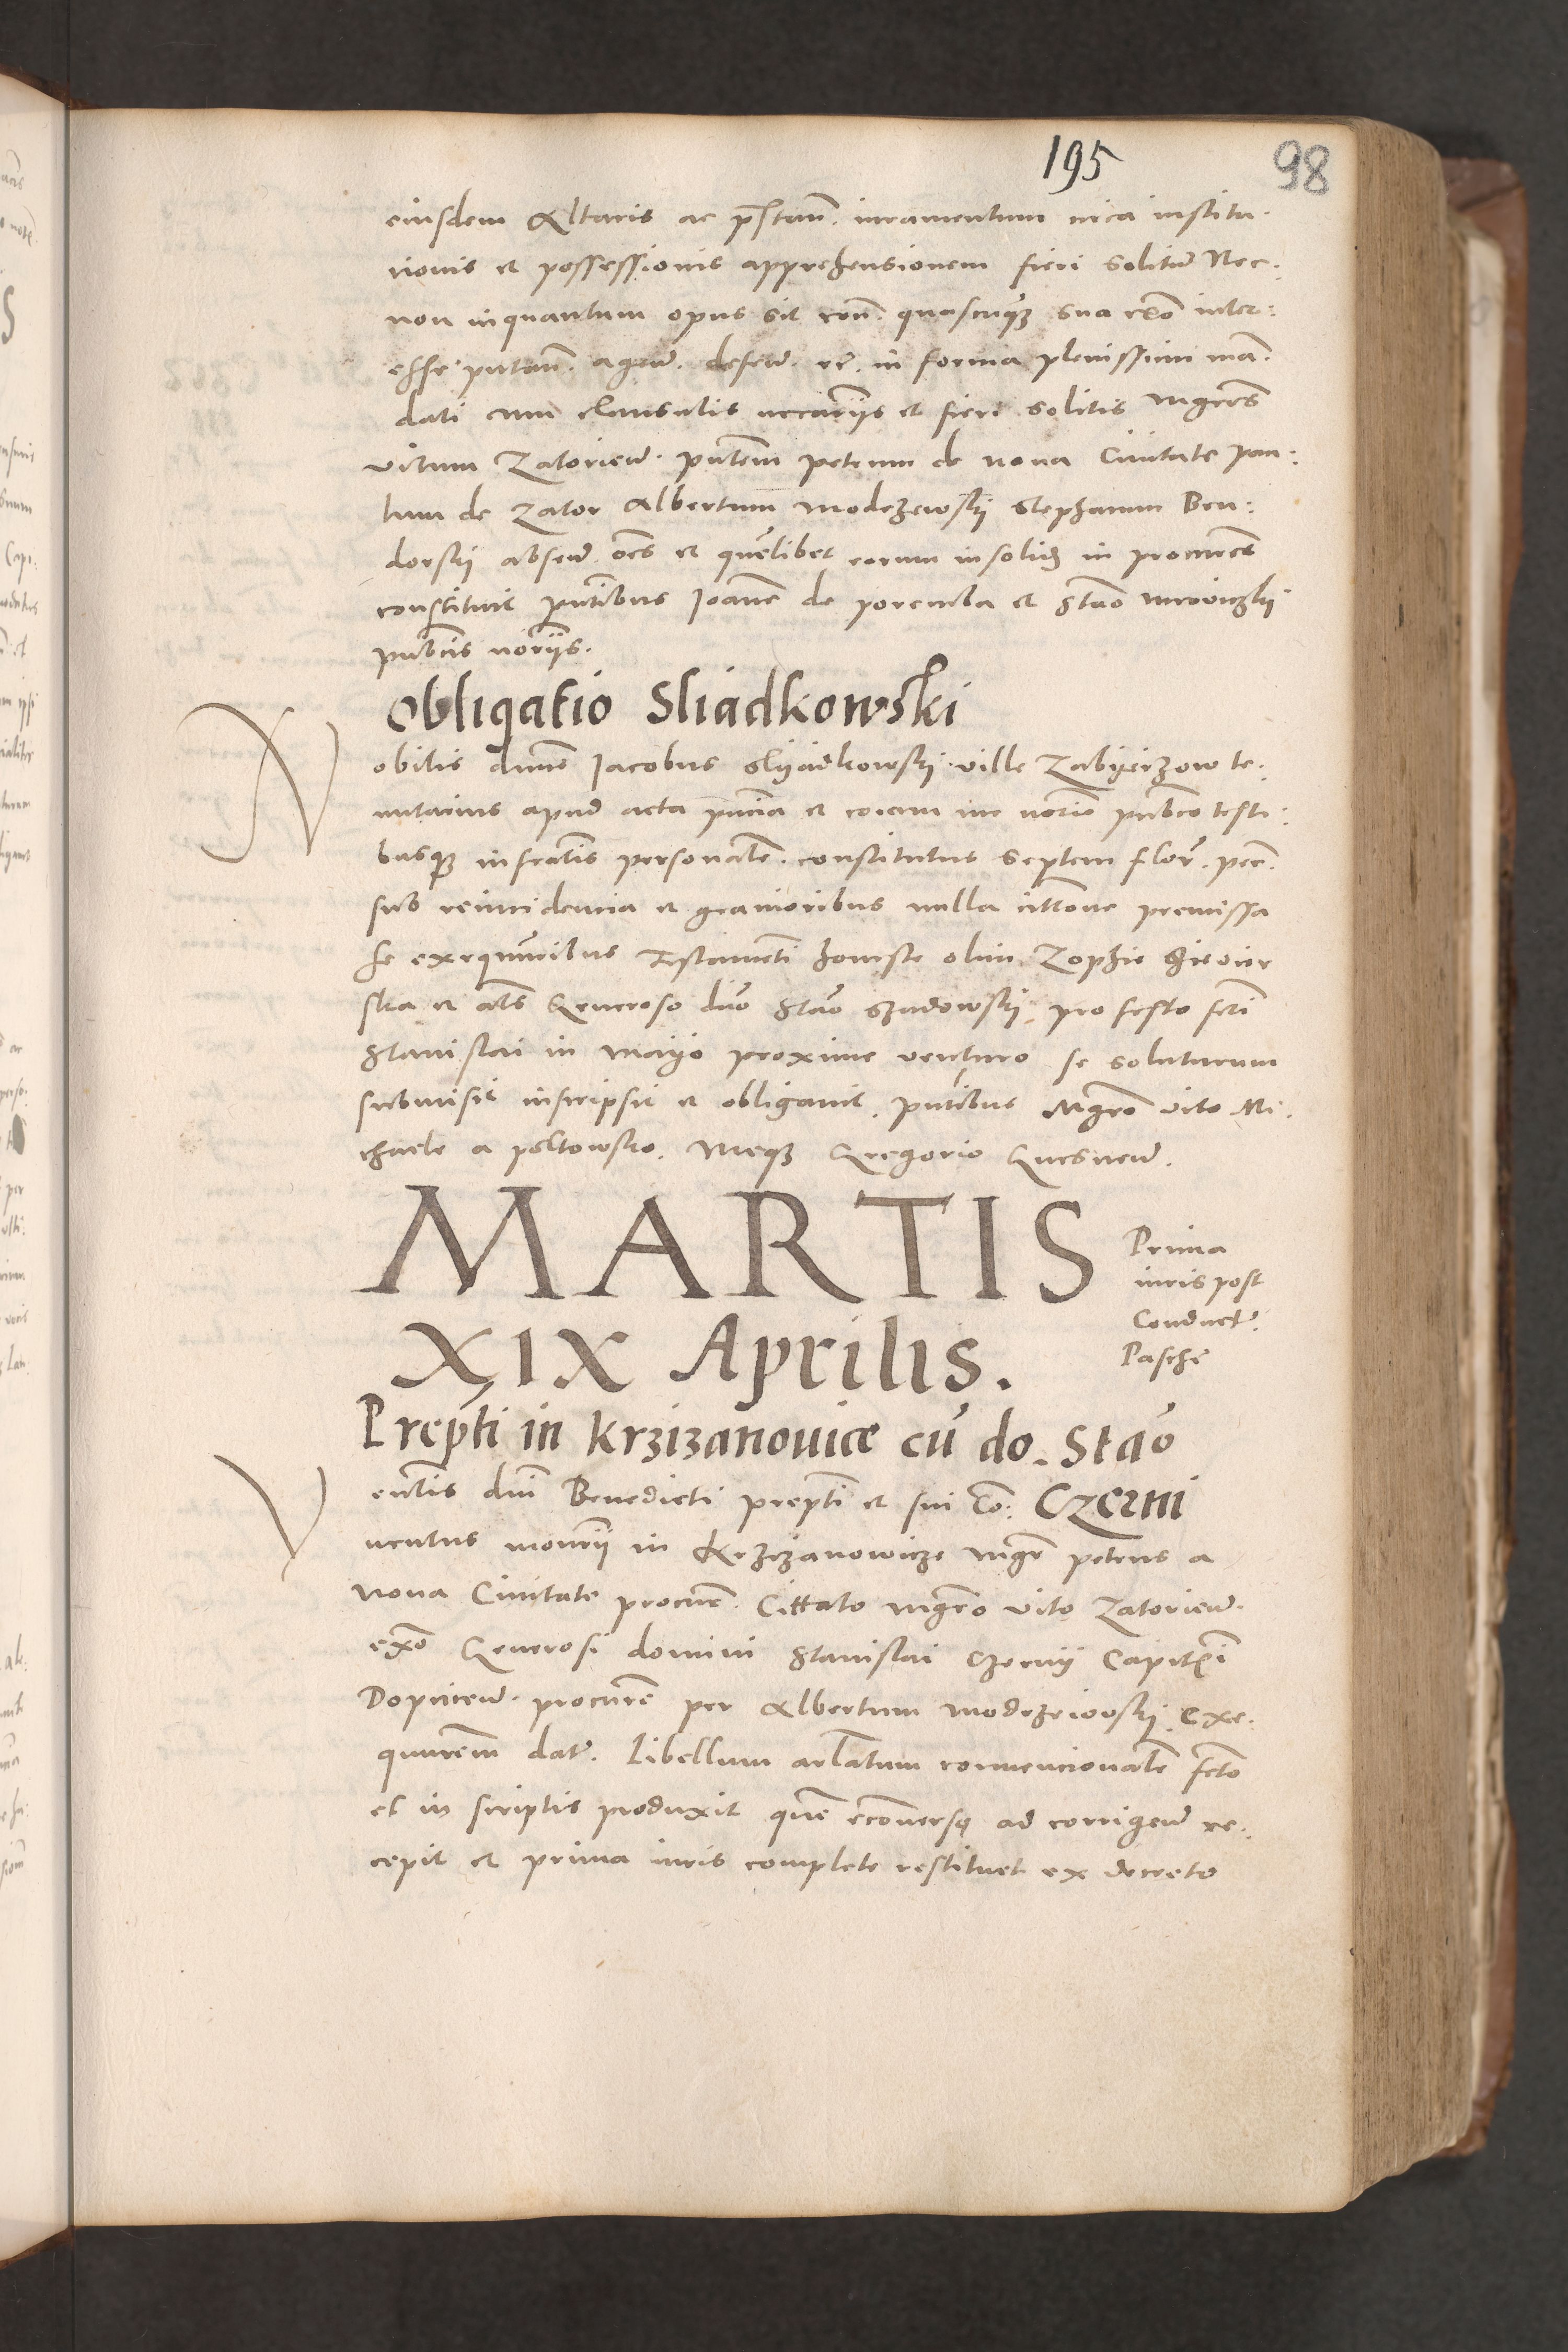 195
98
eiusdem Altaris ac pręstan̄. iuramentum circa institu:
cionis et possessionis apprehensionem fieri solitū Nec:
non inquantum opus sit con̄. quascūq3 sua ex̄o inter:
esse putan̄. agen̄. defen̄. etc̄. in forma plenissimi man̄:
dati cum clausulis necarijs et fieri solitis mgr̄os
vitum Zatorien̄. pn̄tem petrum de nova Civitate pau:
lum de Zator Albertum modrzewskij Stephanum Ben:
dorskij absen̄ oēs et quēlibet eorum insolid3 in procurēs
constituit pn̄tibus Ioanne de poremba et Stāo mrowiczkij
publicis norijs.
Obligatio Sliadkowski
Nobilis dnūs Iacobus Slijadkowskij ville Zabijerzow te:
nutarius apud acta pn̄cia et coram me notīo publico testi:
busq3 infratis personalr̄. constitutus Septem flor̄. pec̄.
sub reincidencia et gravioribus nulla cittōne premissa
se exequūtoribus Testamenti honeste olim Zophie
ska et als̄ Generoso dn̄o Stāo Szadowskij pro festo scti
Stanislai in mayo proxime venturo se soluturum
submisit inscripsit et obligavit. pn̄tibus Mgr̄o vito Mi:
chaele a poltowsko. Meq3 Gregorio Gnesnen̄.
MARTIS
XIX Aprilis.
Prima
iuris post
Conduct̄.
Paschę
Prepti in Krzizanovice cū do. Stāo
Czerni
Ventis dn̄i Benedicti preptī et sui co:
ventus monrij in Krzizanowicze mgr̄ petrus a
nova Civitate procur̄. Cittato mgr̄o vito Zatorien̄.
ex̄o Generosi domini Stanislai Czernij Capitn̄i
Dopcicen̄. procurē per Albertum modrzewskij Exe:
quutorem dat̄. Libellum arlatum convencionalē scto
et in scriptis produxit quē econversq ad corrigen̄ re:
cepit et prima iuris complete restituet ex decreto